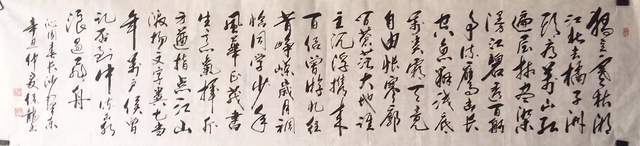 独立寒秋湘
江北去橘子洲
头看万山红
遍层林尽染
漫江碧透百舸
争流鹰击长
空鱼翔浅底
万类霜天竞
自由怅寥廓
问苍茫大地谁
主沉浮携来
百侣曾游忆往
昔峥嵘岁月稠
恰同学少年
风华正茂书
生意气挥斥
方遒指点江山
激扬文字粪土当
年万户侯曾
记否到中流击水
浪遏飞舟
沁园春长沙
辛丑仲夏